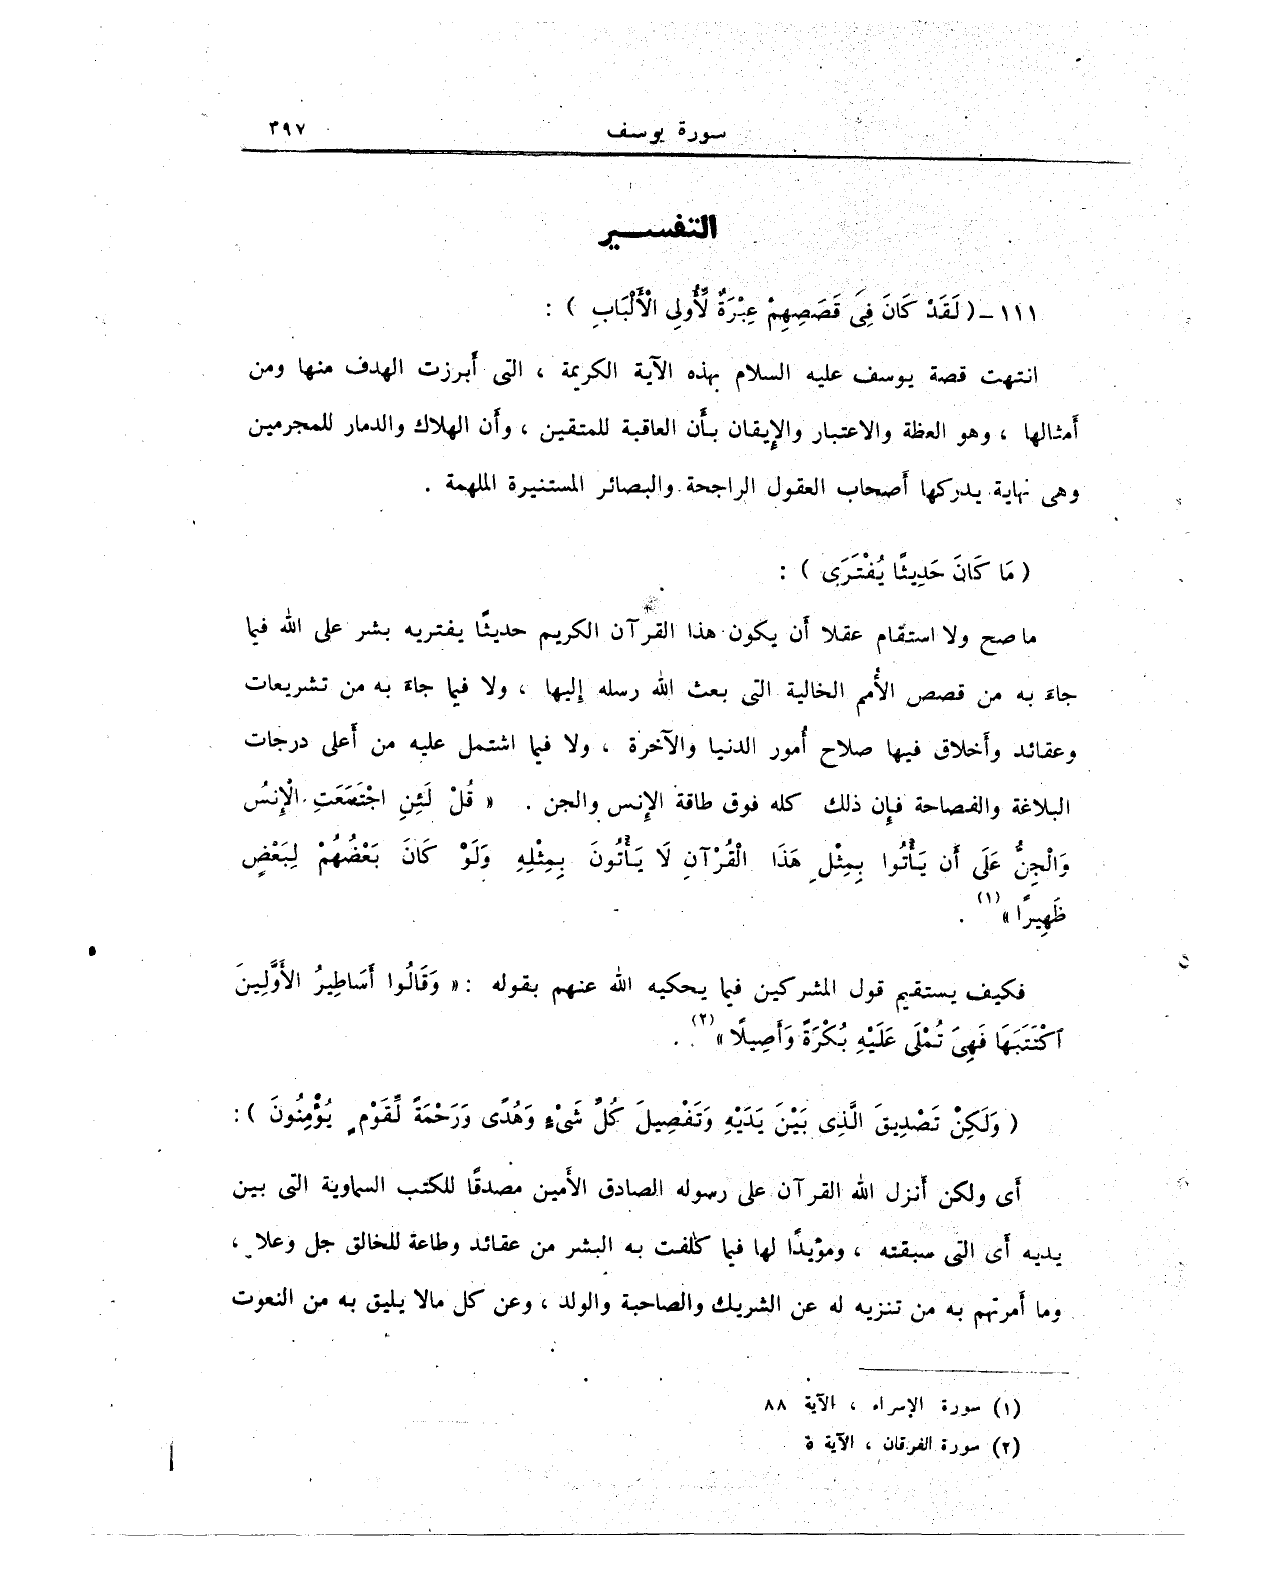 سورة يوسف ٣٩٧
التفسير
١١١ – ( لَقَدْ كَانَ فِى قَصَصِهِمْ عِبْرَةٌ لِّأُولِى الْأَلْبَابِ ) :
انتهت قصة يوسف عليه السلام بهذه الآية الكريمة ، التى أبرزت الهدف منها ومن
أمثالها ، وهو العظة والاعتبار والإيقان بأن العاقبة للمتقين ، وأن الهلاك والدمار للمجرمين
وهى نهاية يدركها أصحاب العقول الراجحة والبصائر المستنيرة الملهمة .
( مَا كَانَ حَدِيثًا يُفْتَرَى ) :
ما صح ولا استقام عقلا أن يكون هذا القرآن الكريم حديثًا يفتريه بشر على الله فيما
جاءَ به من قصص الأُمم الخالية التى بعث الله رسله إليها ، ولا فيما جاءَ به من تشريعات
وعقائد وأخلاق فيها صلاح أُمور الدنيا والآخرة ، ولا فيما اشتمل عليه من أعلى درجات
البلاغة والفصاحة فإن ذلك كله فوق طاقة الإنس والجن . « قُلْ لَئِنِ اجْتَمَعَتِ الْإِنسُ
وَالْجِنُّ عَلَى أَن يَأْتُوا بِمِثْلِ هَذَا الْقُرْآنِ لَا يَأْتُونَ بِمِثْلِهِ وَلَوْ كَانَ بَعْضُهُمْ لِبَعْضٍ
ظَهِيرًا » (١) .
فكيف يستقيم قول المشركين فيما يحكيه الله عنهم بقوله : « وَقَالُوا أَسَاطِيرُ الأَوَّلِينَ
اكْتَتَبَهَا فَهِىَ تُمْلَى عَلَيْهِ بُكْرَةً وَأَصِيلًا » (٢) .
( وَلَكِنْ تَصْدِيقَ الَّذِى بَيْنَ يَدَيْهِ وَتَفْصِيلَ كُلِّ شَىْءٍ وَهُدًى وَرَحْمَةً لِّقَوْمٍ يُؤْمِنُونَ ) :
أى ولكن أنزل الله القرآن على رسوله الصادق الأمين مصدقًا للكتب السماوية التى بين
يديه أى التى سبقته ، ومؤيدًا لها فيما كلفت به البشر من عقائد وطاعة للخالق جل وعلا ،
وما أمرتهم به من تنزيه له عن الشريك والصاحبة والولد ، وعن كل مالا يليق به من النعوت
(١) سورة الإسراء ، الآية ٨٨
(٢) سورة الفرقان ، الآية ٥